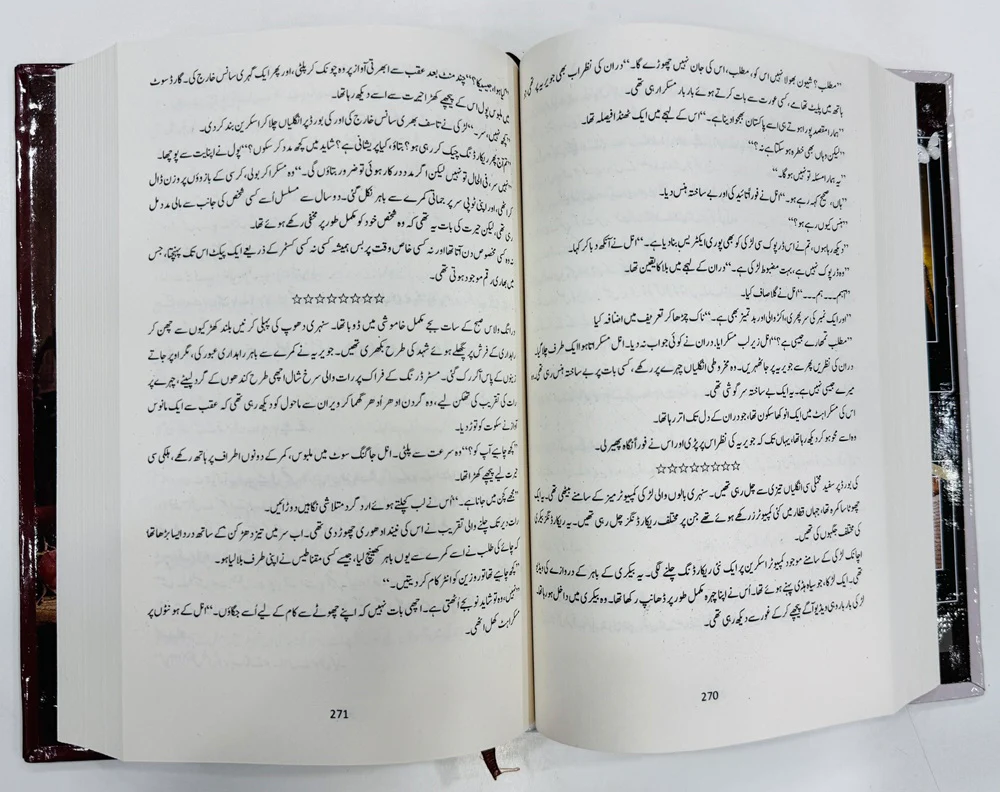 ”مطلب؟ شیون بھولا نہیں اس کو، مطلب، اس کی جان نہیں چھوڑے گا۔“ دران کی نظر اب بھی جویریہ پر تھی،
ہاتھ میں پلیٹ تھامے، کسی عورت سے بات کرتے ہوئے بار بار مسکرا رہی تھی۔
”ہمارا مقصد پورا ہوتے ہی اسے پاکستان بھجوا دینا ہے۔“ اس کے لہجے میں ایک ٹھنڈا فیصلہ تھا۔
”لیکن وہاں بھی خطرہ ہو سکتا ہے نہ؟“
”یہ ہمارا مسئلہ تو نہیں ہوگا۔“
”ہاں، صحیح کہہ رہے ہو۔“ انل نے فوراً تائید کی اور بے ساختہ ہنس دیا۔
”ہنس کیوں رہے ہو؟“
”دیکھ رہا ہوں، تم نے اس ڈرپوک سی لڑکی کو بھی پوری ایکٹریس بنا دیا ہے۔“ انل نے آنکھ دبا کر کہا۔
”وہ ڈرپوک نہیں ہے، بہت مضبوط لڑکی ہے۔“ دران کے لہجے میں بلا کا یقین تھا۔
”اہم۔۔ہم۔۔۔“ انل نے گلا صاف کیا۔
”اور ایک نمبر کی سر پھری، اکڑ والی اور بدتمیز بھی ہے۔“ ناک چڑھا کر تعریف میں اضافہ کیا
”مطلب تمھارے جیسی ہے؟“ انل زیر لب مسکرایا۔ دران نے کوئی جواب نہ دیا۔ انل مسکراتا ہوا ایک طرف چلا گیا۔
دران کی نظریں پھر سے جویریہ پر جا ٹھہریں۔ وہ مخروطی انگلیاں چہرے پر رکھے، کسی بات پر بے ساختہ ہنس رہی تھی۔
میرے جیسی نہیں ہے۔ یہ ایک بے ساختہ سرگوشی تھی۔
اس کی مسکراہٹ میں ایک انوکھا سکون تھا، جو دران کے دل تک اتر رہا تھا۔
وہ اسے محو ہو کر دیکھ رہا تھا، یہاں تک کہ جویریہ کی نظر اس پر پڑی اور اس نے فوراً نگاہ پھیر لی۔
☆☆☆☆☆☆☆☆☆
کی بورڈ پر سفید مخملی سی انگلیاں تیزی سے چل رہی تھیں۔ سنہری بالوں والی لڑکی کمپیوٹر میز کے سامنے بیٹھی تھی۔ یہ ایک
چھوٹا سا کمرہ تھا، جہاں قطار میں کئی کمپیوٹرز رکھے ہوئے تھے جن پر مختلف ریکارڈنگز چل رہی تھیں۔ یہ ریکارڈنگز بیکری
کی مختلف جگہوں کی تھیں۔
اچانک لڑکی کے سامنے موجود کمپیوٹر اسکرین پر ایک نئی ریکارڈنگ چلنے لگی۔ یہ بیکری کے باہر کے دروازے کی ویڈیو
تھی۔ ایک لڑکا، جو سیاہ ہڈی پہنے ہوئے تھا۔ اُس نے اپنا چہرہ مکمل طور پر ڈھانپ رکھا تھا۔ وہ بیکری میں داخل ہو رہا تھا،
لڑکی بار بار وہی ویڈیو آگے پیچھے کر کے غور سے دیکھ رہی تھی۔
270
”کیا ہوا، جیسیکا؟“ چند منٹ بعد عقب سے ابھرتی آواز پر وہ چونک کر پلٹی، اور پھر ایک گہری سانس خارج کی۔ گارڈ سوٹ
میں ملبوس پول اس کے پیچھے کھڑا حیرت سے اسے دیکھ رہا تھا۔
”کچھ نہیں، سر۔“ لڑکی نے تاسف بھری سانس خارج کی اور کی بورڈ پر انگلیاں چلا کر اسکرین بند کر دی۔
”تم آج پھر ریکارڈنگ چیک کر رہی ہو؟ بتاؤ، کیا پریشانی ہے؟ شاید میں کچھ مدد کر سکوں؟“ پول نے اپنایت سے پوچھا۔
”نہیں سر، فی الحال تو نہیں لیکن اگر مدد درکار ہوئی تو ضرور بتاؤں گی۔“ وہ مسکرا کر بولی، کرسی کے بازوؤں پر وزن ڈال
کر اٹھی، اور اپنی ٹوپی سر پر جماتی کمرے سے باہر نکل گئی۔ دو سال سے مسلسل اُسے کسی شخص کی جانب سے مالی مدد مل
رہی تھی، لیکن حیرت کی بات یہ تھی کہ وہ شخص خود کو مکمل طور پر مخفی رکھے ہوئے تھا۔
نہ وہ کسی مخصوص دن آتا تھا اور نہ کسی خاص وقت پر بس ہمیشہ کسی نہ کسی کسٹمر کے ذریعے ایک پیکٹ اس تک پہنچتا، جس
میں بھاری رقم موجود ہوتی تھی۔
☆☆☆☆☆☆☆☆☆
درانگ ولاس صبح کے سات بجے مکمل خاموشی میں ڈوبا تھا۔ سنہری دھوپ کی پہلی کرنیں بلند کھڑکیوں سے چھن کر
راہداری کے فرش پر پگھلے ہوئے شہد کی طرح بکھری تھیں۔ جویریہ نے کمرے سے باہر راہداری عبور کی، مگر اوپر جاتے
زینوں کے پاس آ کر رک گئی۔ مسٹرڈ رنگ کے فراک پر رات والی سرخ شال اچھی طرح کندھوں کے گرد لپیٹے، چہرے پر
رات کی تقریب کی تھکن لیے، وہ گردن ادھر اُدھر گھما کر ویران سے ماحول کو دیکھ رہی تھی کہ عقب سے ایک مانوس
آواز نے سکوت کو توڑ دیا۔
”کچھ چاہیے آپ کو؟“ وہ سرعت سے پلٹی۔ انل جاگنگ سوٹ میں ملبوس، کمر کے دونوں اطراف پر ہاتھ رکھے، ہلکی سی
حیرت لیے پیچھے کھڑا تھا۔
”مجھے کچن میں جانا ہے۔“ اُس نے لب کچلتے ہوئے ارد گرد متلاشی نگاہیں دوڑائیں۔
رات دیر تک چلنے والی تقریب نے اس کی نیند ادھوری چھوڑ دی تھی۔ اب سر میں تیز دھڑکن کے ساتھ درد ایسا بڑھا تھا
کہ چائے کی طلب نے اسے کمرے سے یوں باہر کھینچ لیا، جیسے کسی مقناطیس نے اپنی طرف بلا لیا ہو۔
”کچھ چاہیے تھا تو روزین کو انٹر کام کر دیتیں۔“
”نہیں، وہ تو شاید نو بجے اُٹھتی ہے۔ اچھی بات نہیں کہ اپنے چھوٹے سے کام کے لیے اُسے جگاؤں۔“ انل کے ہونٹوں پر
مسکراہٹ کھل اٹھی۔
271